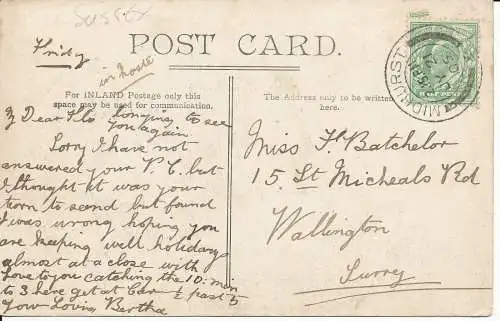 Sussex
Friday
in haste
POST CARD.
For INLAND Postage only this
space may be used for communication.
The Address only to be written
here.
MIDHURST
My Dear Flo longing to see
you again
Sorry I have not
answered your P.C. but
I thought it was your
torn to send but found
I was wrong hoping you
are keeping well holidays
almost at a close with
Love to you catching the 10: min
to 3 here get at Car & past 5
Your Loving Bertha
Miss F. Batchelor
15, St Micheals Rd
Wallington
Surrey